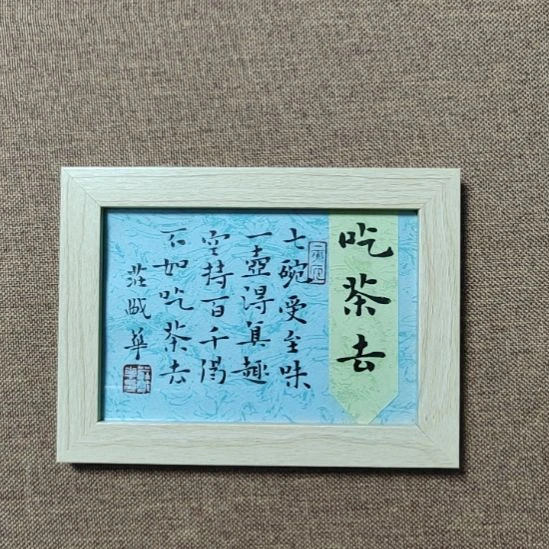 吃茶去
七碗受至味
一壺得真趣
空持百千偈
不如吃茶去